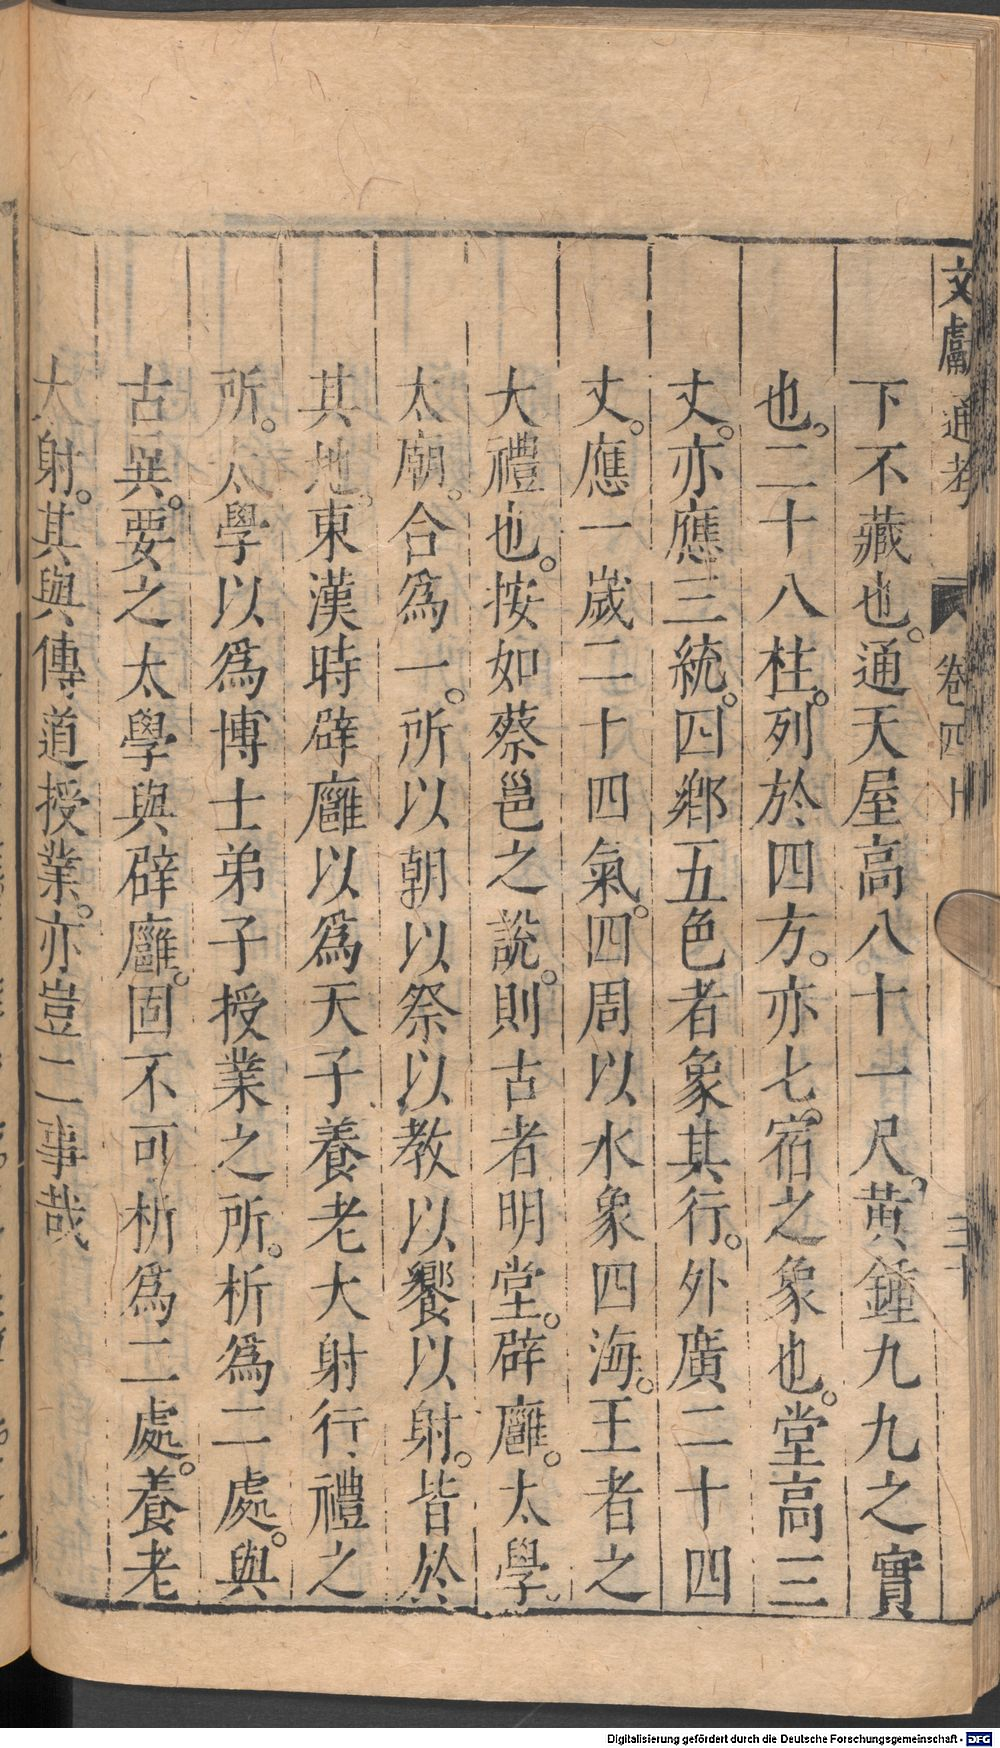 文獻通考 卷四十 三十
下不藏也。通天屋高八十一尺。黃鍾九九之實
也。二十八柱。列於四方。亦七宿之象也。堂高三
丈。亦應三統。四鄉五色者象其行。外廣二十四
丈。應一歲二十四氣。四周以水象四海。王者之
大禮也。按如蔡邕之說。則古者明堂。辟廱。太學。
太廟。合爲一。所以朝以祭以教以饗以射。皆於
其地。東漢時辟廱以爲天子養老大射行禮之
所。太學以爲博士弟子授業之所。析爲二處。與
古異。要之太學與辟廱。固不可析爲二處。養老
大射。其與傳道授業。亦豈二事哉
Digitalisierung gefördert durch die Deutsche Forschungsgemeinschaft - DFG